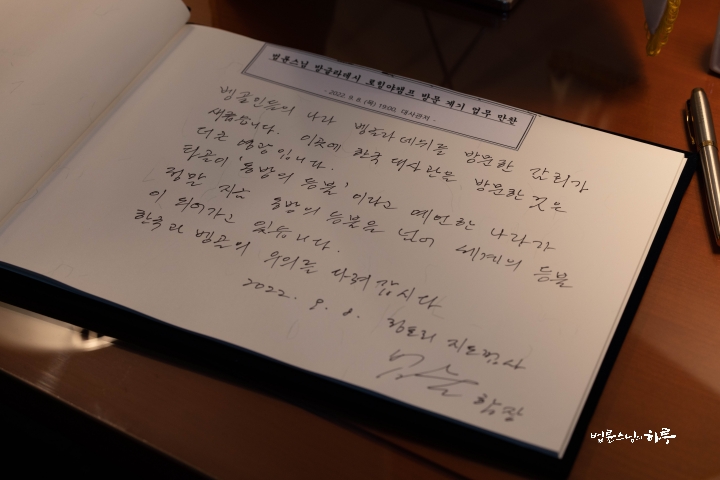 법륜스님 방글라데시 로힝야캠프 방문 계기 업무 만찬
- 2022. 9. 8. (목) 19:00, 대사관저 -
벵골인들의 나라 벵글라데쉬를 방문한 감회가
새롭습니다. 이곳에 한국 대사관을 방문한 것은
더 큰 영광입니다.
타골이 '동방의 등불'이라고 예언한 나라가
정말 지금 동방의 등불을 넘어 세계의 등불
이 되어가고 있습니다.
한국과 벵골의 우의를 다져 갑시다
2022. 9. 8.
정토회 지도법사
법륜 합장
법륜스님의하루